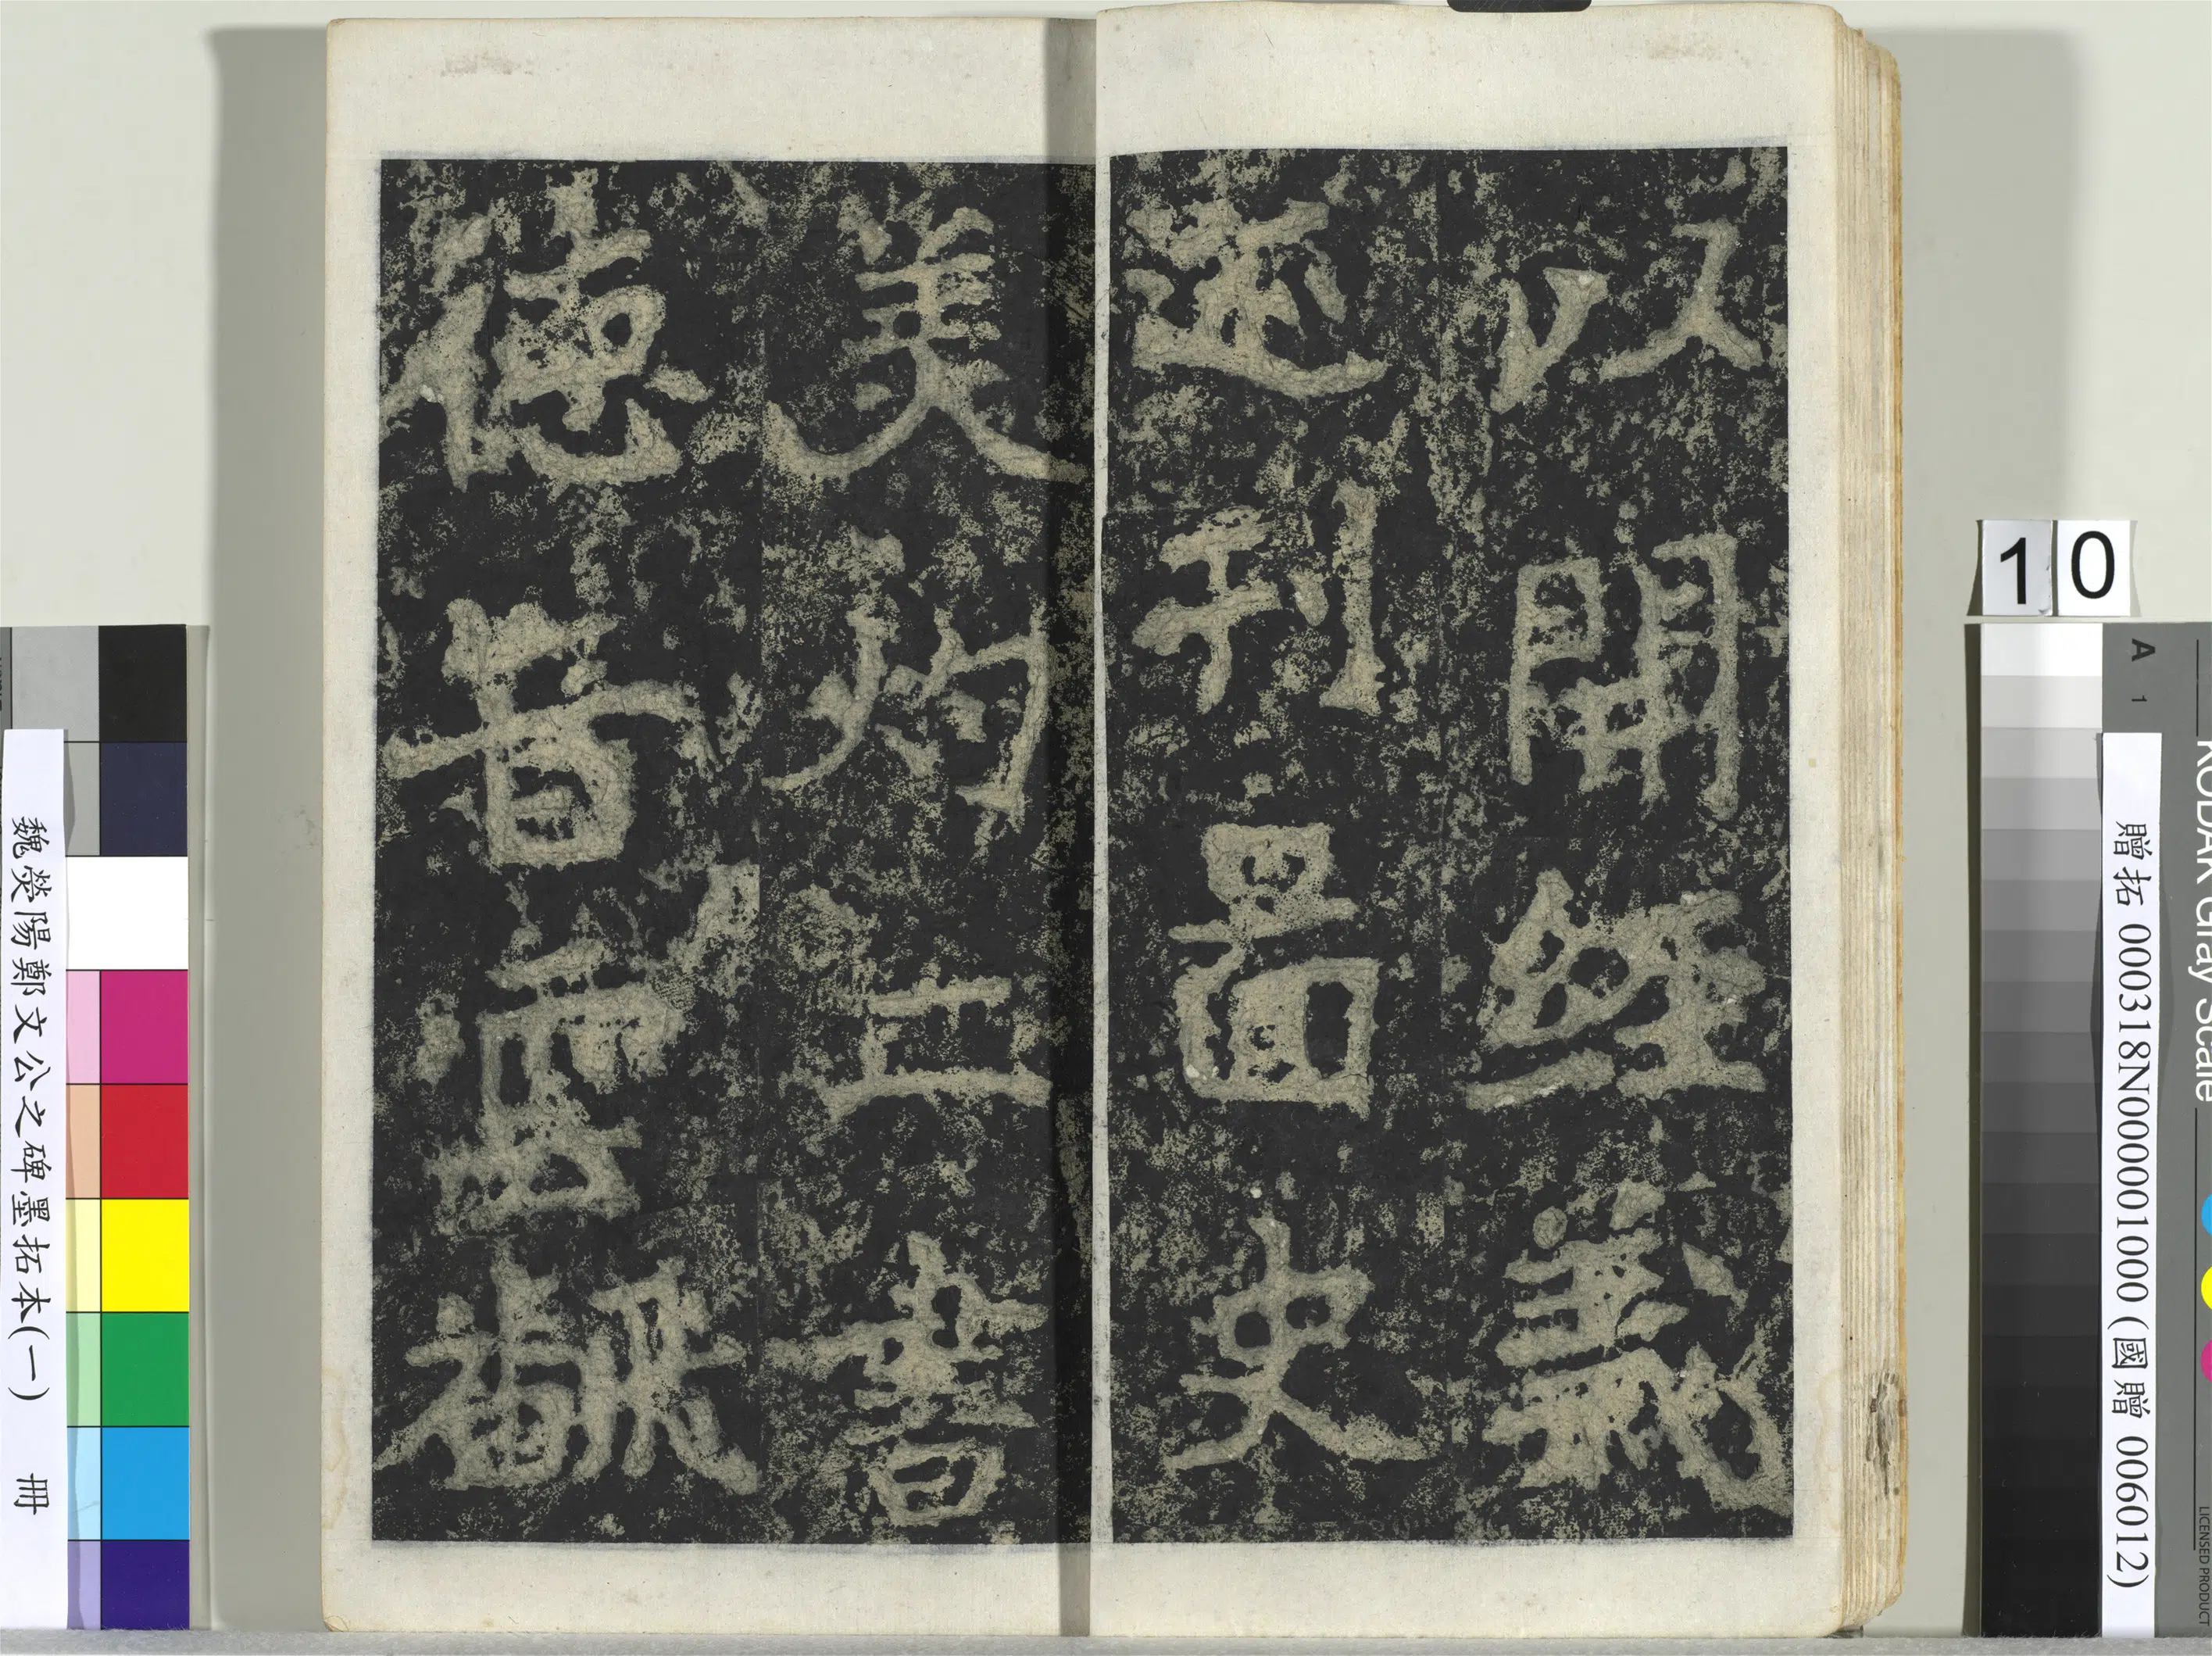 以開經義
遠刊圖史
美灼二書
德音雲翻
魏熒陽鄭文公之碑墨拓本(一) 冊
贈拓 000318N000001000 (國贈 006012)
10
A 1
KODAK Gray Scale
LICENSED PRODUCT